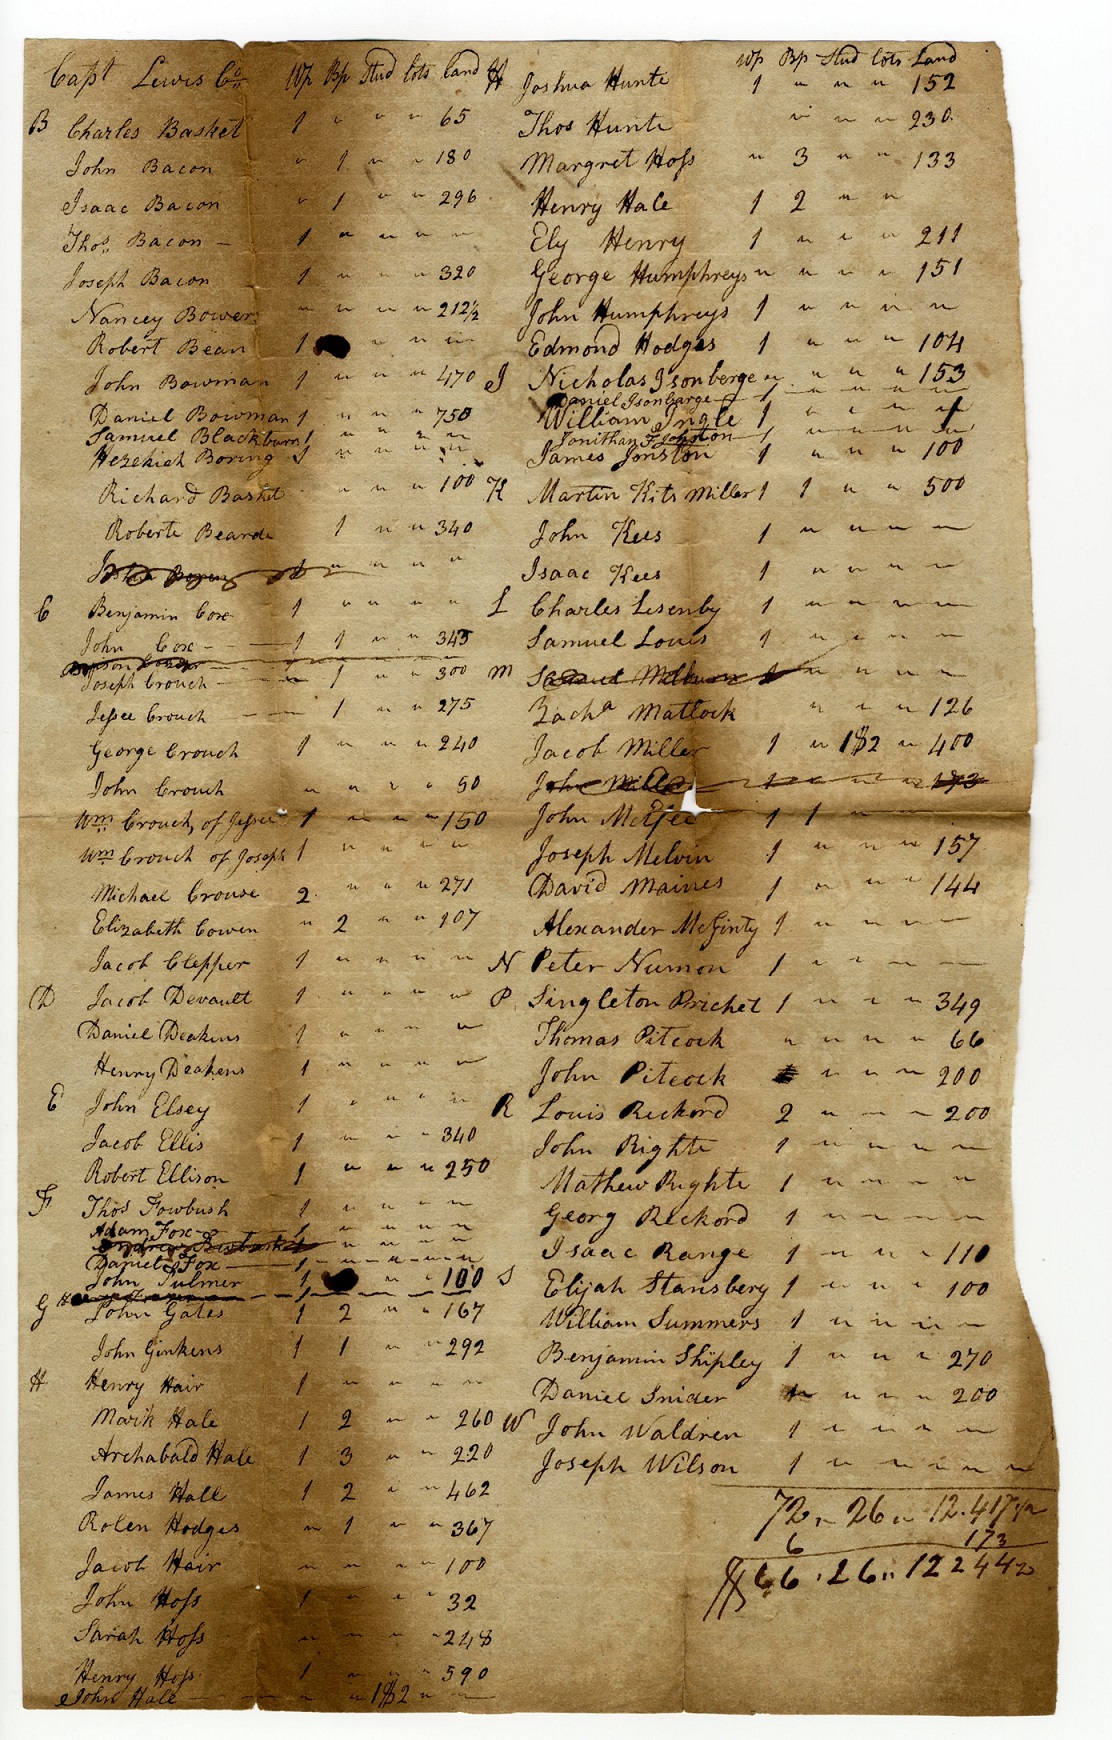 Capt Lewis Co Wp Bp Stud Lots Land
B Charles Basket 1 " " " 65
John Bacon " 1 " " 180
Isaac Bacon " 1 " " 296
Thos Bacon – 1 " " " "
Joseph Bacon 1 " " " 320
Nancey Bower " " " " 212½
Robert Bean 1 " " "
John Bowman 1 " " " 470
Daniel Bowman 1 " " " 750
Samuel Blackburn 1 " " " "
Hezekiah Boring 1 " " " "
Richard Basket " " " 100
Roberte Bearde 1 " " 340
Joshua Boren 1 " " " "
C Benjamin Cox 1 " " " "
John Cox 1 1 " " 345
Joseph Crouch " 1 " " 300
Jessee Crouch 1 " " 275
George Crouch 1 " " " 240
John Crouch " " " " 50
Wm Crouch, of Jessee 1 " " " 150
Wm Crouch of Joseph 1 " " " "
Michael Crouse 2 " " " 271
Elizabeth Cowen " 2 " " 107
Jacob Clepper 1 " " " "
D Jacob Devault 1 " " " "
Daniel Deakins 1 " " " "
Henry Deakens 1 " " " "
E John Elsey 1 " " " "
Jacob Ellis 1 " " " 340
Robert Ellison 1 " " " 250
F Thos Fowbush 1 " " " "
Adam Fox 1 " " " "
Daniel Fox 1 " " " "
John Fulmer 1 " " 100
G John Gates 1 2 " " 167
John Ginkens 1 1 " " 292
H Henry Hair 1 " " " "
Mark Hale 1 2 " " 260
Archabald Hale 1 3 " " 220
James Hall 1 2 " " 462
Rolen Hodges " 1 " " 367
Jacob Hair " " " " 100
John Hoss 1 " " " 32
Sarah Hoss " " " " 248
Henry Hoss 1 " " " 590
John Hale " " 1$2 " "
Wp Bp Stud Lots Land
H Joshua Hunte 1 " " " 152
Thos Hunte " " " 230
Margret Hoss " 3 " " 133
Henry Hale 1 2 " "
Ely Henry 1 " " " 211
George Humphreys " " " " 151
John Humphreys 1 " " " "
Edmond Hodges 1 " " " 104
J Nicholas Isonberge " " " " 153
Daniel Isonbarge 1 " " " "
William Ingle 1 " " " 1
Jonithan F Jonston 1 " " " "
James Jonston 1 " " " 100
K Martin Kits Miller 1 1 " " 500
John Kees 1 " " " "
Isaac Kees 1 " " " "
L Charles Lesenby 1 " " " "
Samuel Louis 1 " " " "
M Samuel Milburn 1 " " " "
Zacha Matlock " " " 126
Jacob Miller 1 " 1$2 " 400
John Miller 1 " " " 173
John McGee 1 1 "
Joseph Melvin 1 " " " 157
David Maines 1 " " " 144
Alexander McGinty 1 " " " "
N Peter Numon 1 " " " "
P Singleton Prichet 1 " " " 349
Thomas Pitcock " " " " 66
John Pitcock " " " 200
R Louis Reckord 2 " " " 200
John Righte 1 " " " "
Mathew Righte 1 " " " "
Georg Reckord 1 " " " "
Isaac Range 1 " " " 110
S Elijah Stansberg 1 " " " 100
William Summers 1 " " " "
Benjamin Shipley 1 " " " 270
Daniel Snider " " " 200
W John Waldren 1 " " " "
Joseph Wilson 1 " " " "
72 " 26 " 12.417½
6 173
66 . 26 " 12244½